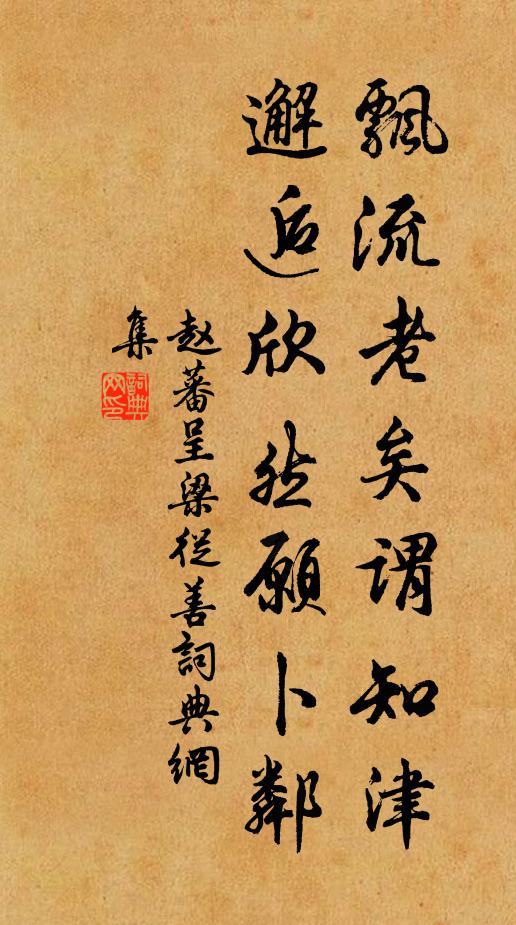 飄流老矣謂知津
邂逅欣然願卜鄰
赵蕃呈梁從善詞典網
集
詞典
网印